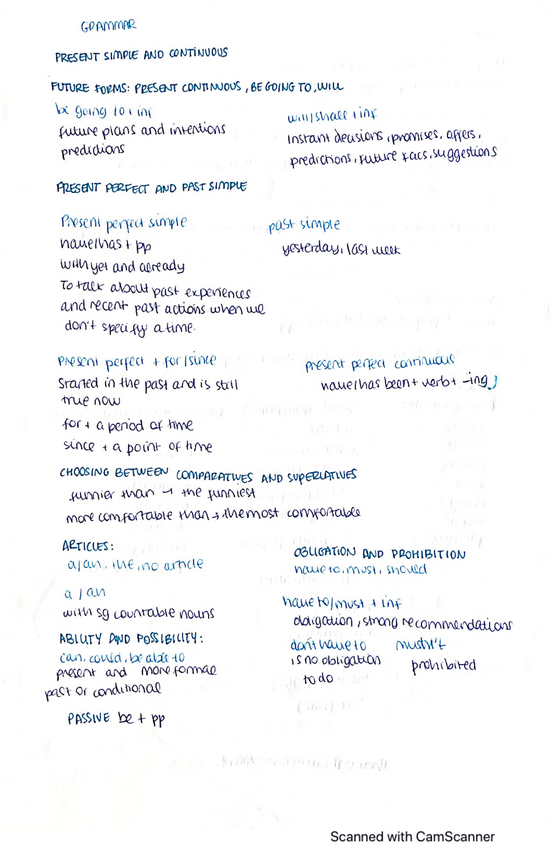 GRAMMAR
PRESENT SIMPLE AND CONTINUOUS
FUTURE FORMS: PRESENT CONTINUOUS, BE GOING TO, WILL
be going to + inf
future plans and intentions
predictions
will/shall + inf
instant decisions, promises, offers,
predictions, future facs, suggestions
PRESENT PERFECT AND PAST SIMPLE
Present perfect simple
have/has + pp
with yet and already
To talk about past experiences
and recent past actions when we
don't specify a time.
past simple
yesterday, last week
Present perfect + for/since
Started in the past and is still
true now
for + a period of time
since + a point of time
present perfect continuous
have/has been + verb + -ing
CHOOSING BETWEEN COMPARATIVES AND SUPERLATIVES
funnier than → the funniest
more comfortable than → the most comfortable
ARTICLES:
a/an, the, no article
a / an
with sg countable nouns
ABILITY AND POSSIBILITY:
can, could, be able to
present and more formal
past or conditional
PASSIVE be + pp
OBLIGATION AND PROHIBITION
have to, must, should
have to/must + inf
obligation, strong recommendations
don't have to mustn't
is no obligation prohibited
to do
Scanned with CamScanner